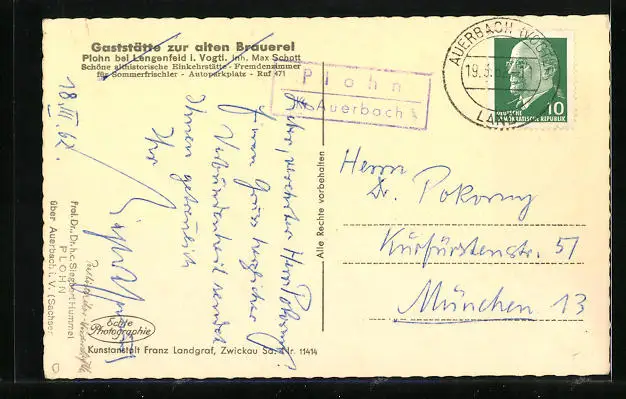 Gaststätte zur alten Brauerei
Plohn bei Lengenfeld i. Vogtl. Inh. Max Schott
Schöne althistorische Einkehrstätte - Fremdenzimmer
für Sommerfrischler - Autoparkplatz - Ruf 471
Plohn
Auerbach
AUERBACH (VOGTL)
19.3.62
LAND
10
DEUTSCHE
DEMOKRATISCHE REPUBLIK
18. III. 62.
Lieber, verehrter Herr Pokorny!
Ihnen getreulich
Ihr
Prof. Dr. Dr. h. c. Siegbert Hummel
PLOHN
über Auerbach i. V. (Sachsen
Echte
Photographie
Kunstanstalt Franz Landgraf, Zwickau Sa. Nr. 11414
Alle Rechte vorbehalten
Herrn
Dr. Pokorny
Kurfürstenstr. 51
München 13